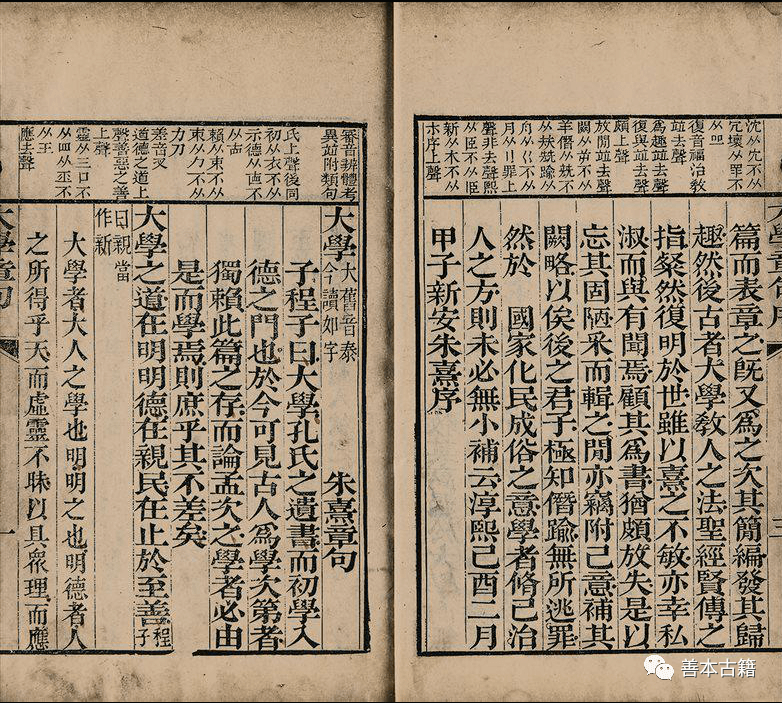 沈从冘不从
冗壞从罒不
从罒
復音福治教
竝去聲
爲趣竝去聲
復與竝去聲
頗上聲
放閒竝去聲
闕从欮不从
羊僭从兟不
从㚘兟踰从
月从刂罪上
聲非去聲熙
从𦣞不从臣
新从木不从
本序上聲
大學章句序
篇而表章之旣又爲之次其簡編發其歸
趣然後古者大學敎人之法聖經賢傳之
指粲然復明於世雖以熹之不敏亦幸私
淑而與有聞焉顧其爲書猶頗放失是以
忘其固陋采而輯之閒亦竊附己意補其
闕略以俟後之君子極知僭踰無所逃罪
然於 國家化民成俗之意學者脩己治
人之方則未必無小補云淳熙己酉二月
甲子新安朱熹序
審音辨體考
異竝附類句
氏上聲後同
初从衣不从
示德从直不
从古
賴从束不从
束从力不从
刀
差音叉
道德之道上
聲善惡之善
上聲
靈从三口不
从四从巫不
从王
應去聲
大學大舊音泰今讀如字 朱熹章句
子程子曰大學孔氏之遺書而初學入
德之門也於今可見古人爲學次第者
獨賴此篇之存而論孟次之學者必由
是而學焉則庶乎其不差矣
大學之道在明明德在親民在止於至善程子
曰親當作新
大學者大人之學也明明之也明德者人
之所得乎天而虛靈不昧以具衆理而應
大學章句
一
善本古籍